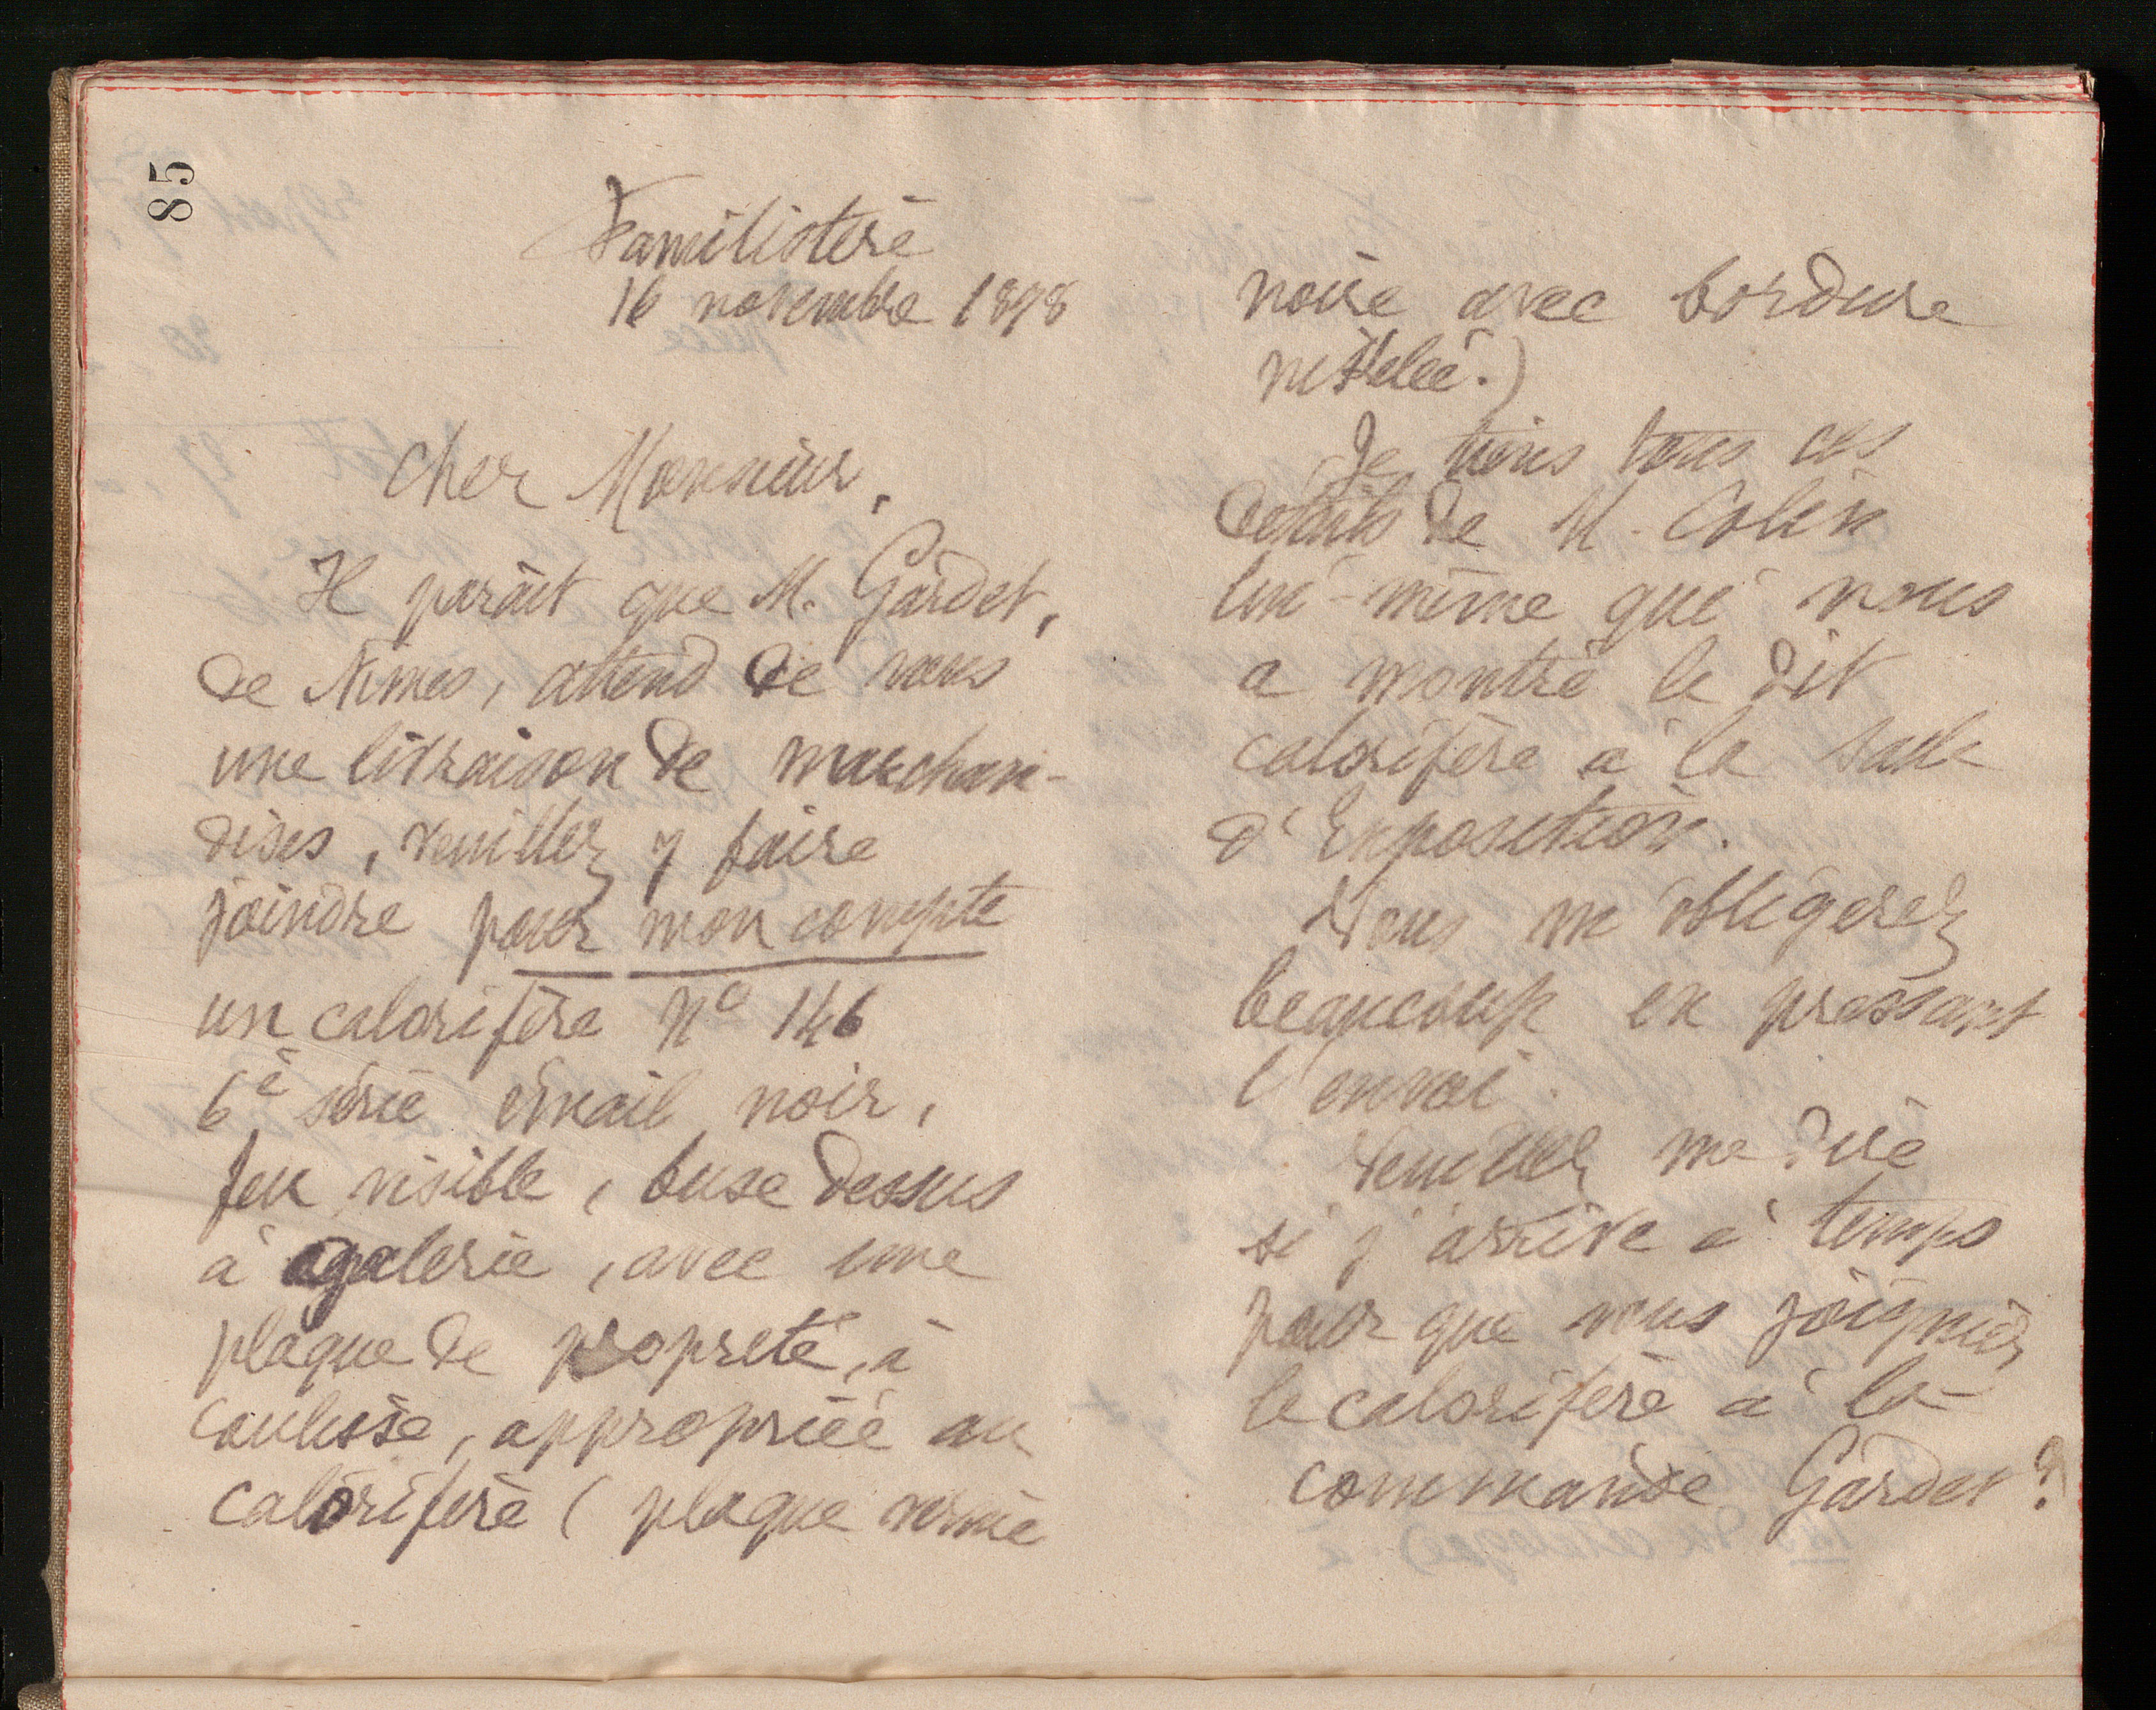 85
Familistère
16 novembre 1898
Cher Monsieur,
Il paraît que M. Gardet,
de Nîmes, attend de vous
une livraison de marchan-
dises, veuillez y faire
joindre pour mon compte
un calorifère No 146
6e série émail noir,
feu visible, buse dessus
à galerie, avec une
plaque de propreté, à
coulisse, appropriée au
calorifère (plaque vernie
noire avec bordure
nickelée.)
Je tiens tous ces
détails de M. Colin
lui-même qui nous
a montré le dit
calorifère à la salle
d'Exposition.
Vous m'obligerez
beaucoup en pressant
l'envoi.
Veuillez me dire
si j'arrive à temps
pour que vous joigniez
le calorifère à la
commande Gardet?